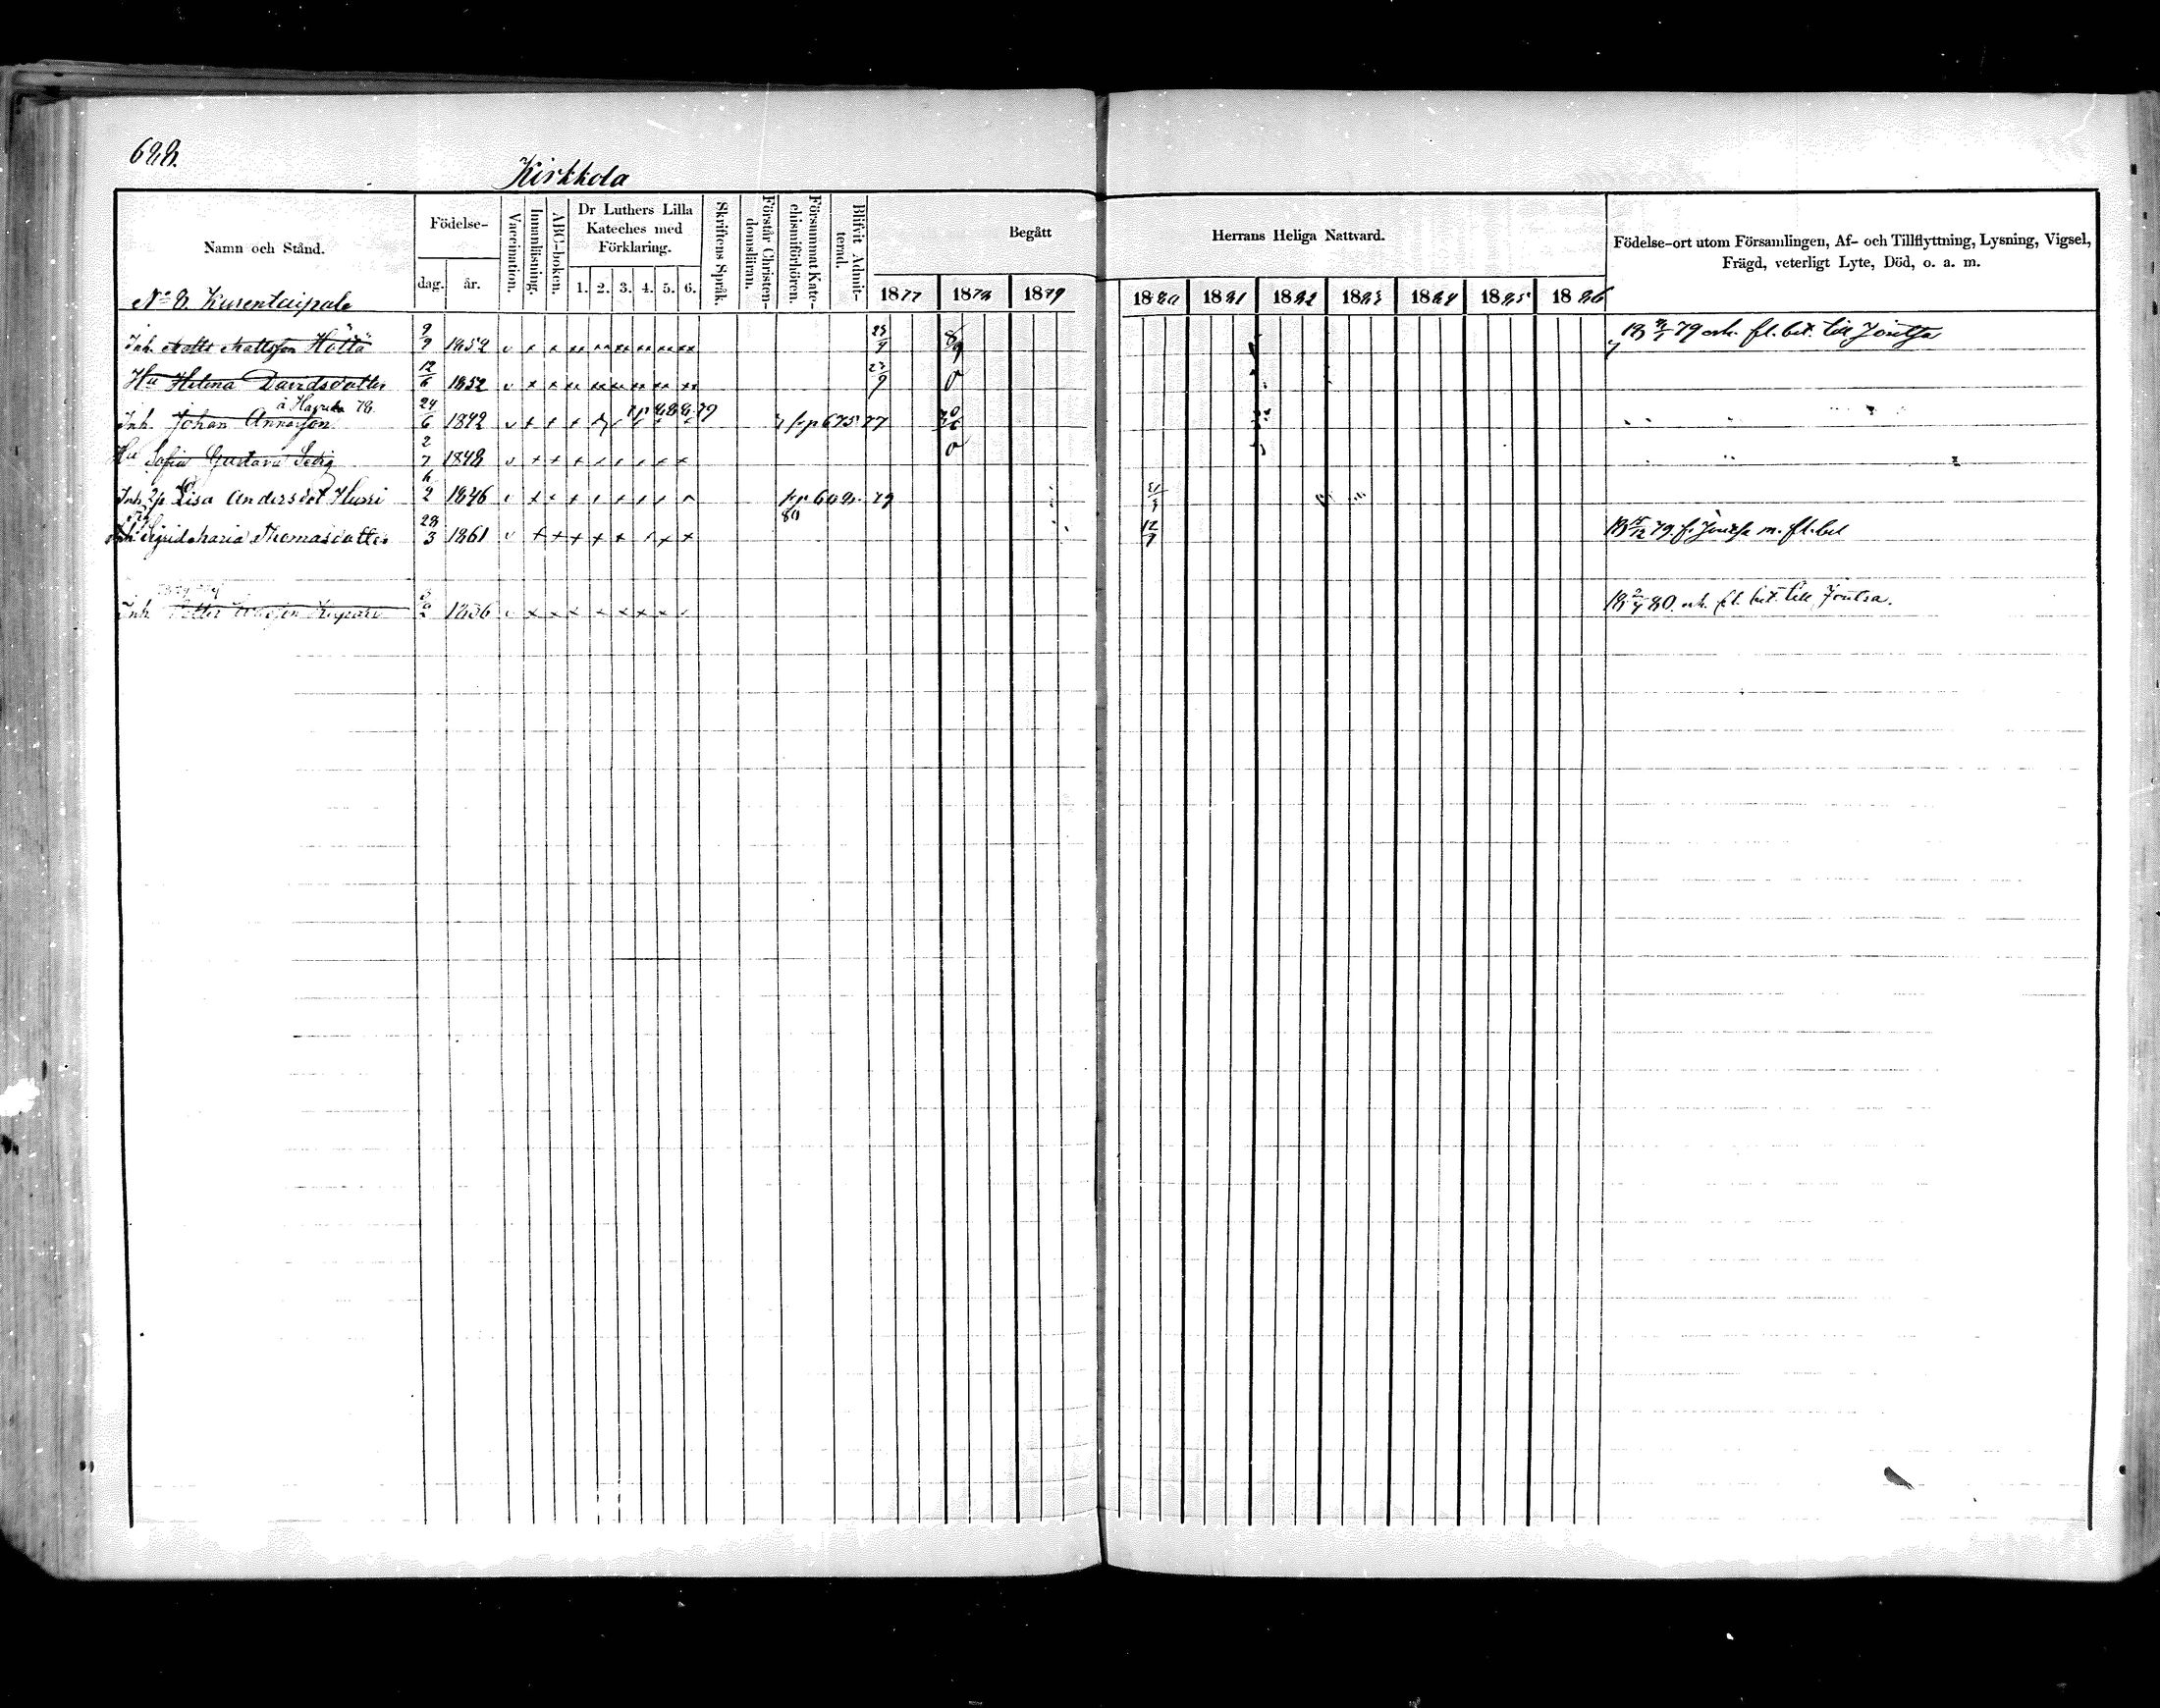 688.
Kirkkola
Namn och Stånd.
Födelse-
dag. år.
Vaccination.
Innanläsning.
ABC-boken.
Dr Luthers Lilla Kateches med Förklaring.
1. 2. 3. 4. 5. 6.
Skriftens Språk.
Förstår Christendomsläran.
Försummat Katechismiförhören.
Blifvit Admitterad.
Begått Herrans Heliga Nattvard.
1877 1878 1879 1880 1881 1882 1883 1884 1885 1886
Födelse-ort utom Församlingen, Af- och Tillflyttning, Lysning, Vigsel,
Frägd, veterligt Lyte, Död, o. a. m.
No 8. Kurentaipale
Inh. Matts Mattsson Höltä 9/9 1852 v x x 18 79 erh. fl. bet. till Joutsa
Hu Helena Davidsdotter 12/6 1852 v x x
å Haguka 78
Inh. Johan Annasson 24/6 1842 v x x x 79 p 675 77
Hu Sofia Gustava Sedig 2/7 1848 v x x x
Inh. Lisa Andersdot Hurri 2 1846 79
80
Sigrid Maria Thomasdotter 28/3 1861 v x x x x x 12/7 18 15/12 79 f. Joutsa m. fl. bet
Inh. Petter 1836 v x x x x x x x 18 2/4 80 erh. fl. bet. till Joutsa.